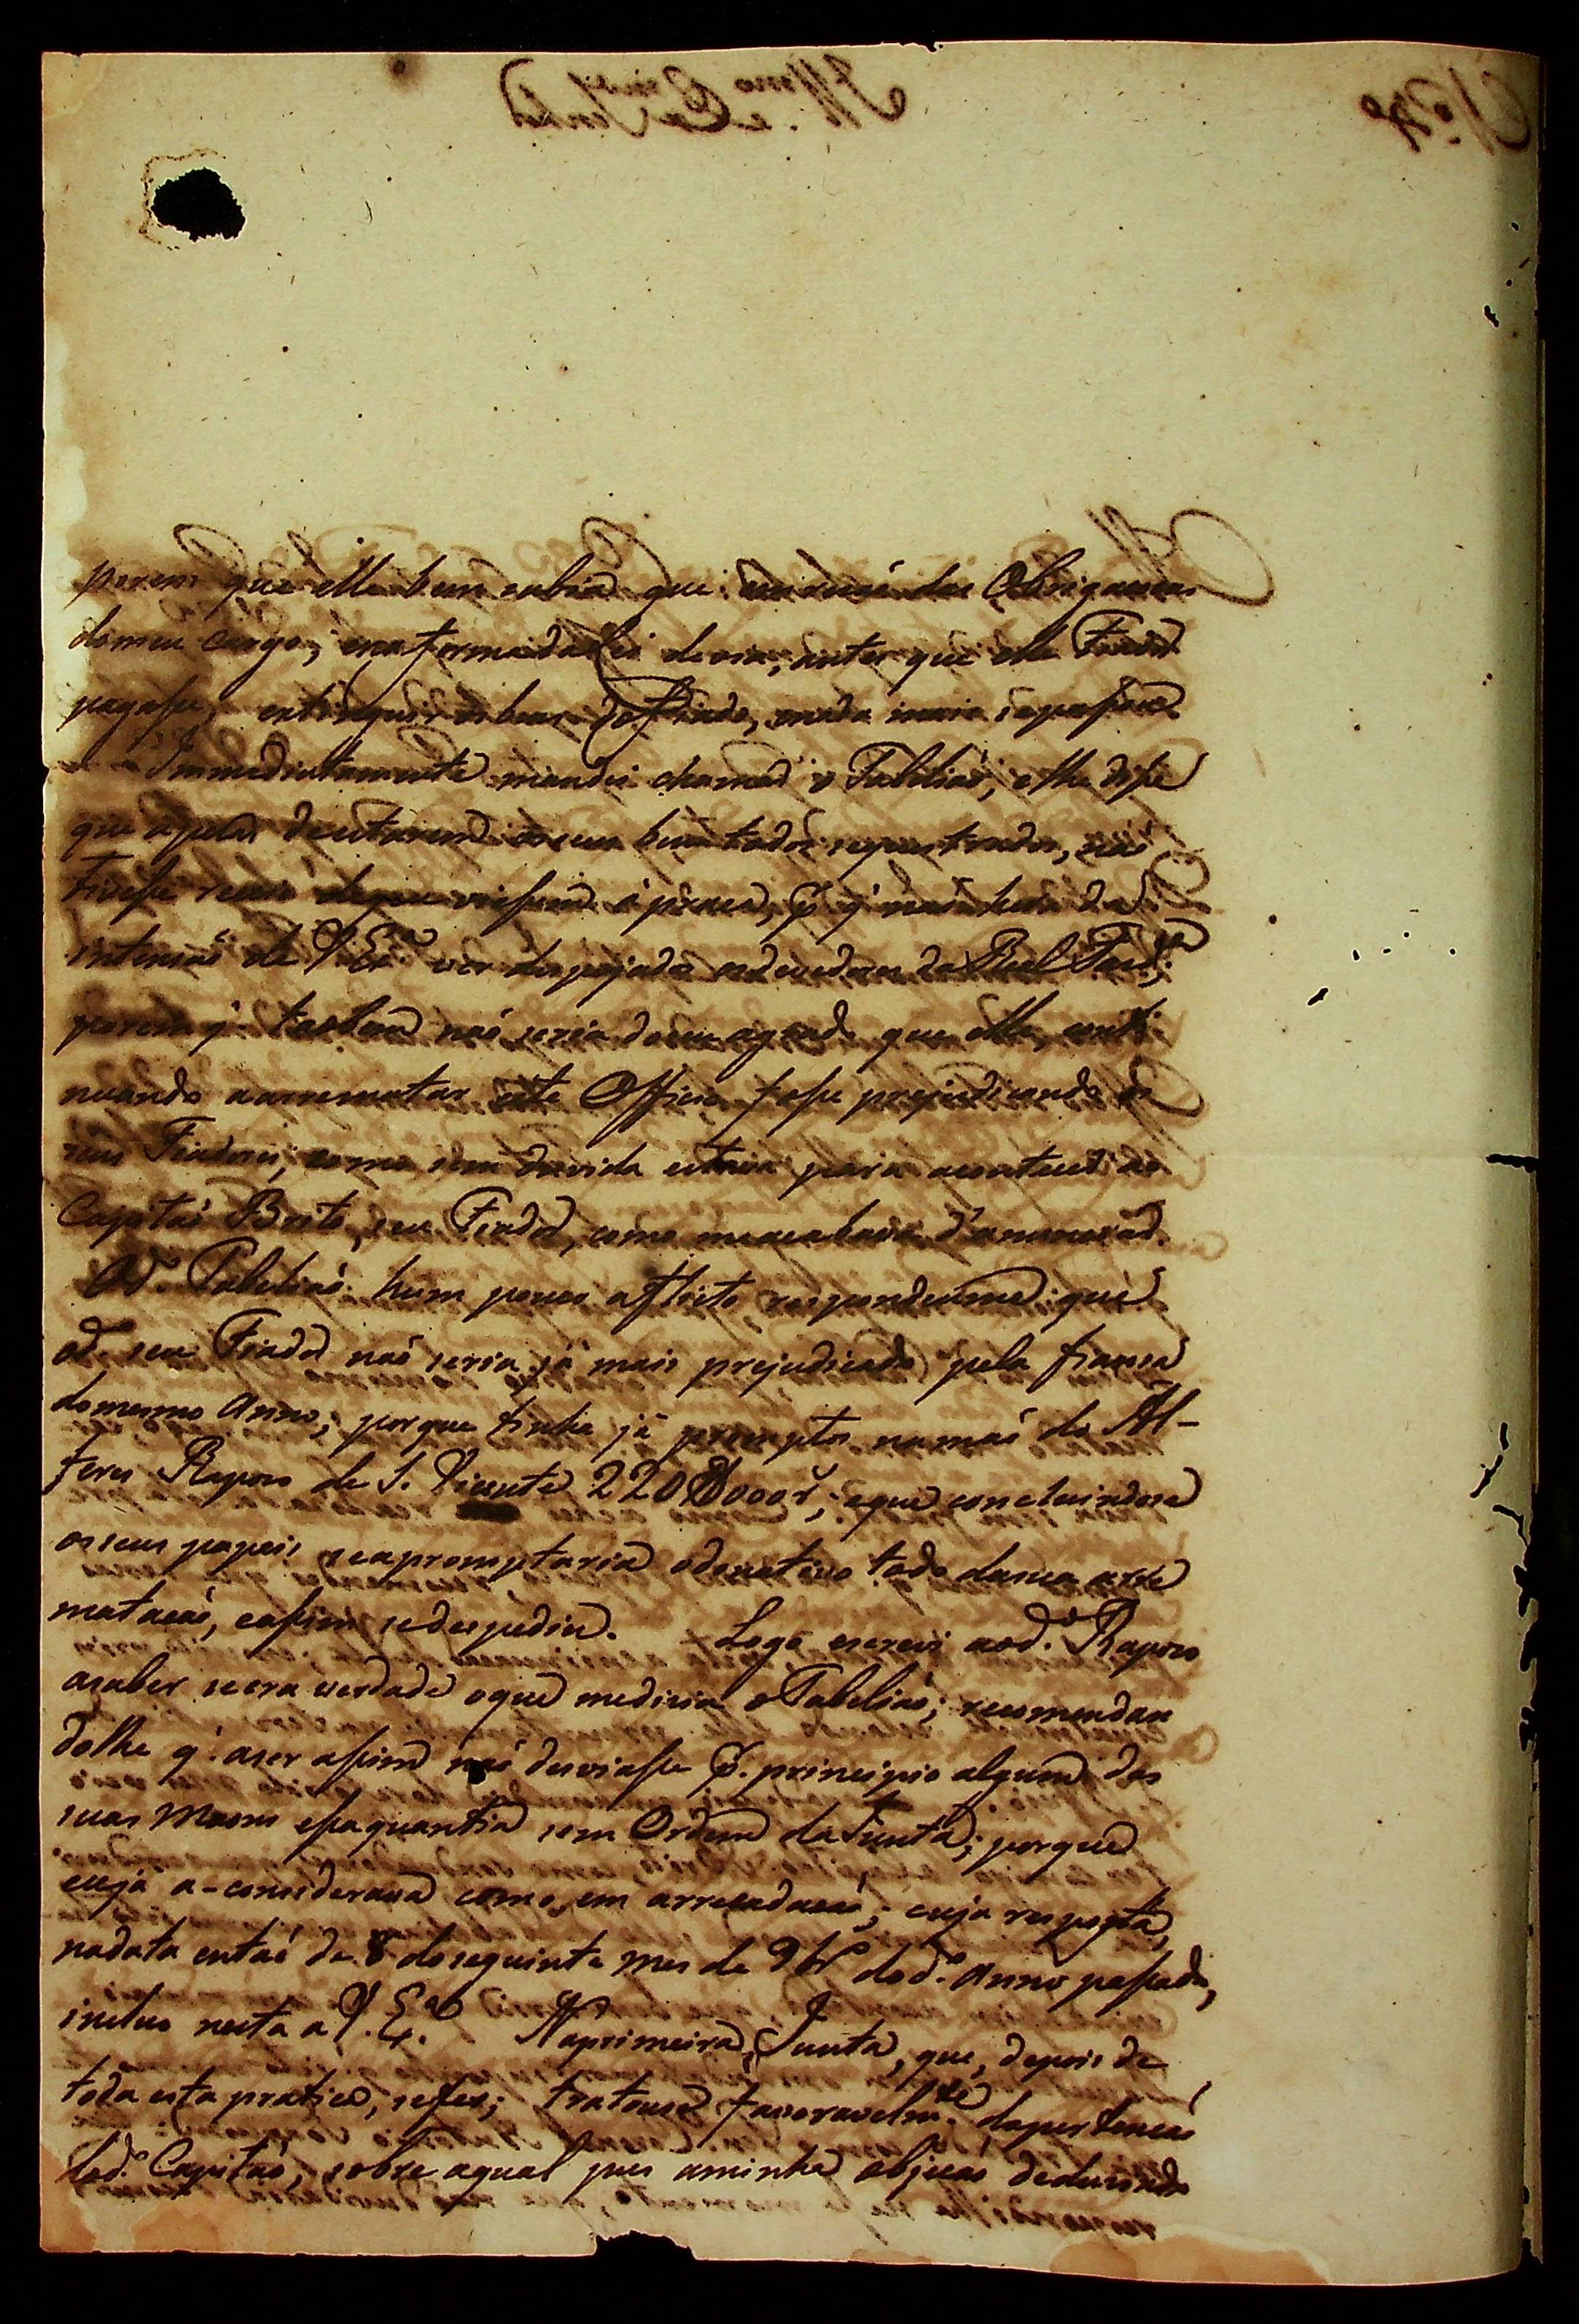 porem que elle bem sabia que huma das Obrigacoes
do meu Cargo, e na formaid a Lei devia, antes que elle Fiador
pagasse, extinguir os bens do Fiado, e nada mais se passou.
Immediatamente mandei chamar o Tabeliaõ, e lhe disse
que apezar de estarem os seus bens todos sequestrados, naõ
tivesse receio de que viessem á praca, p.r q' naõ hera da
intensaõ de V. Ex.ª ver despojados os devedores da Real Faz.da;
porem q' taobem naõ seria do seu agrado que elle, conti-
nuando a arrematar este Officio fosse prejudicando os
seus Fiadores, como sem duvida estaria para acontecer ao
Capitaõ Brito, seu Fiador, como me acabava d'anunciar.
O d.º Tabeliaõ hum pouco aflicto, respondeume: que
o d.º seu Fiador naõ seria já mais prejudicado pela fiansa
do mesmo Anno; porque tinha já promptos na maõ do Al-
feres Raposo de S. Vicente 220$000 r.s; e que concluindose
os seus papeis se apromptaria o donativo todo da sua arre
matacaõ, e assim se despediu. Logo escrevi ao d.º Raposo
a saber se era verdade o que me dicia o Tabeliaõ; recomendan
dolhe q' a ser assim naõ desviasse p.r principio algum das
suas Maons essa quantia sem Ordem da Junta; porque
eu já a-considerava como em arrecadacaõ; cuja resposta,
na data entaõ de 8 do seguinte mes de 9br.º do d.º Anno passado,
incluo nesta a V. Ex.ª Na primeira Junta, que, depois de
toda esta pratica, se fes; tratouse favoravelm.te da pertencaõ
do d.º Capitaõ, sobre a qual pus a minha objecaõ dedusindo